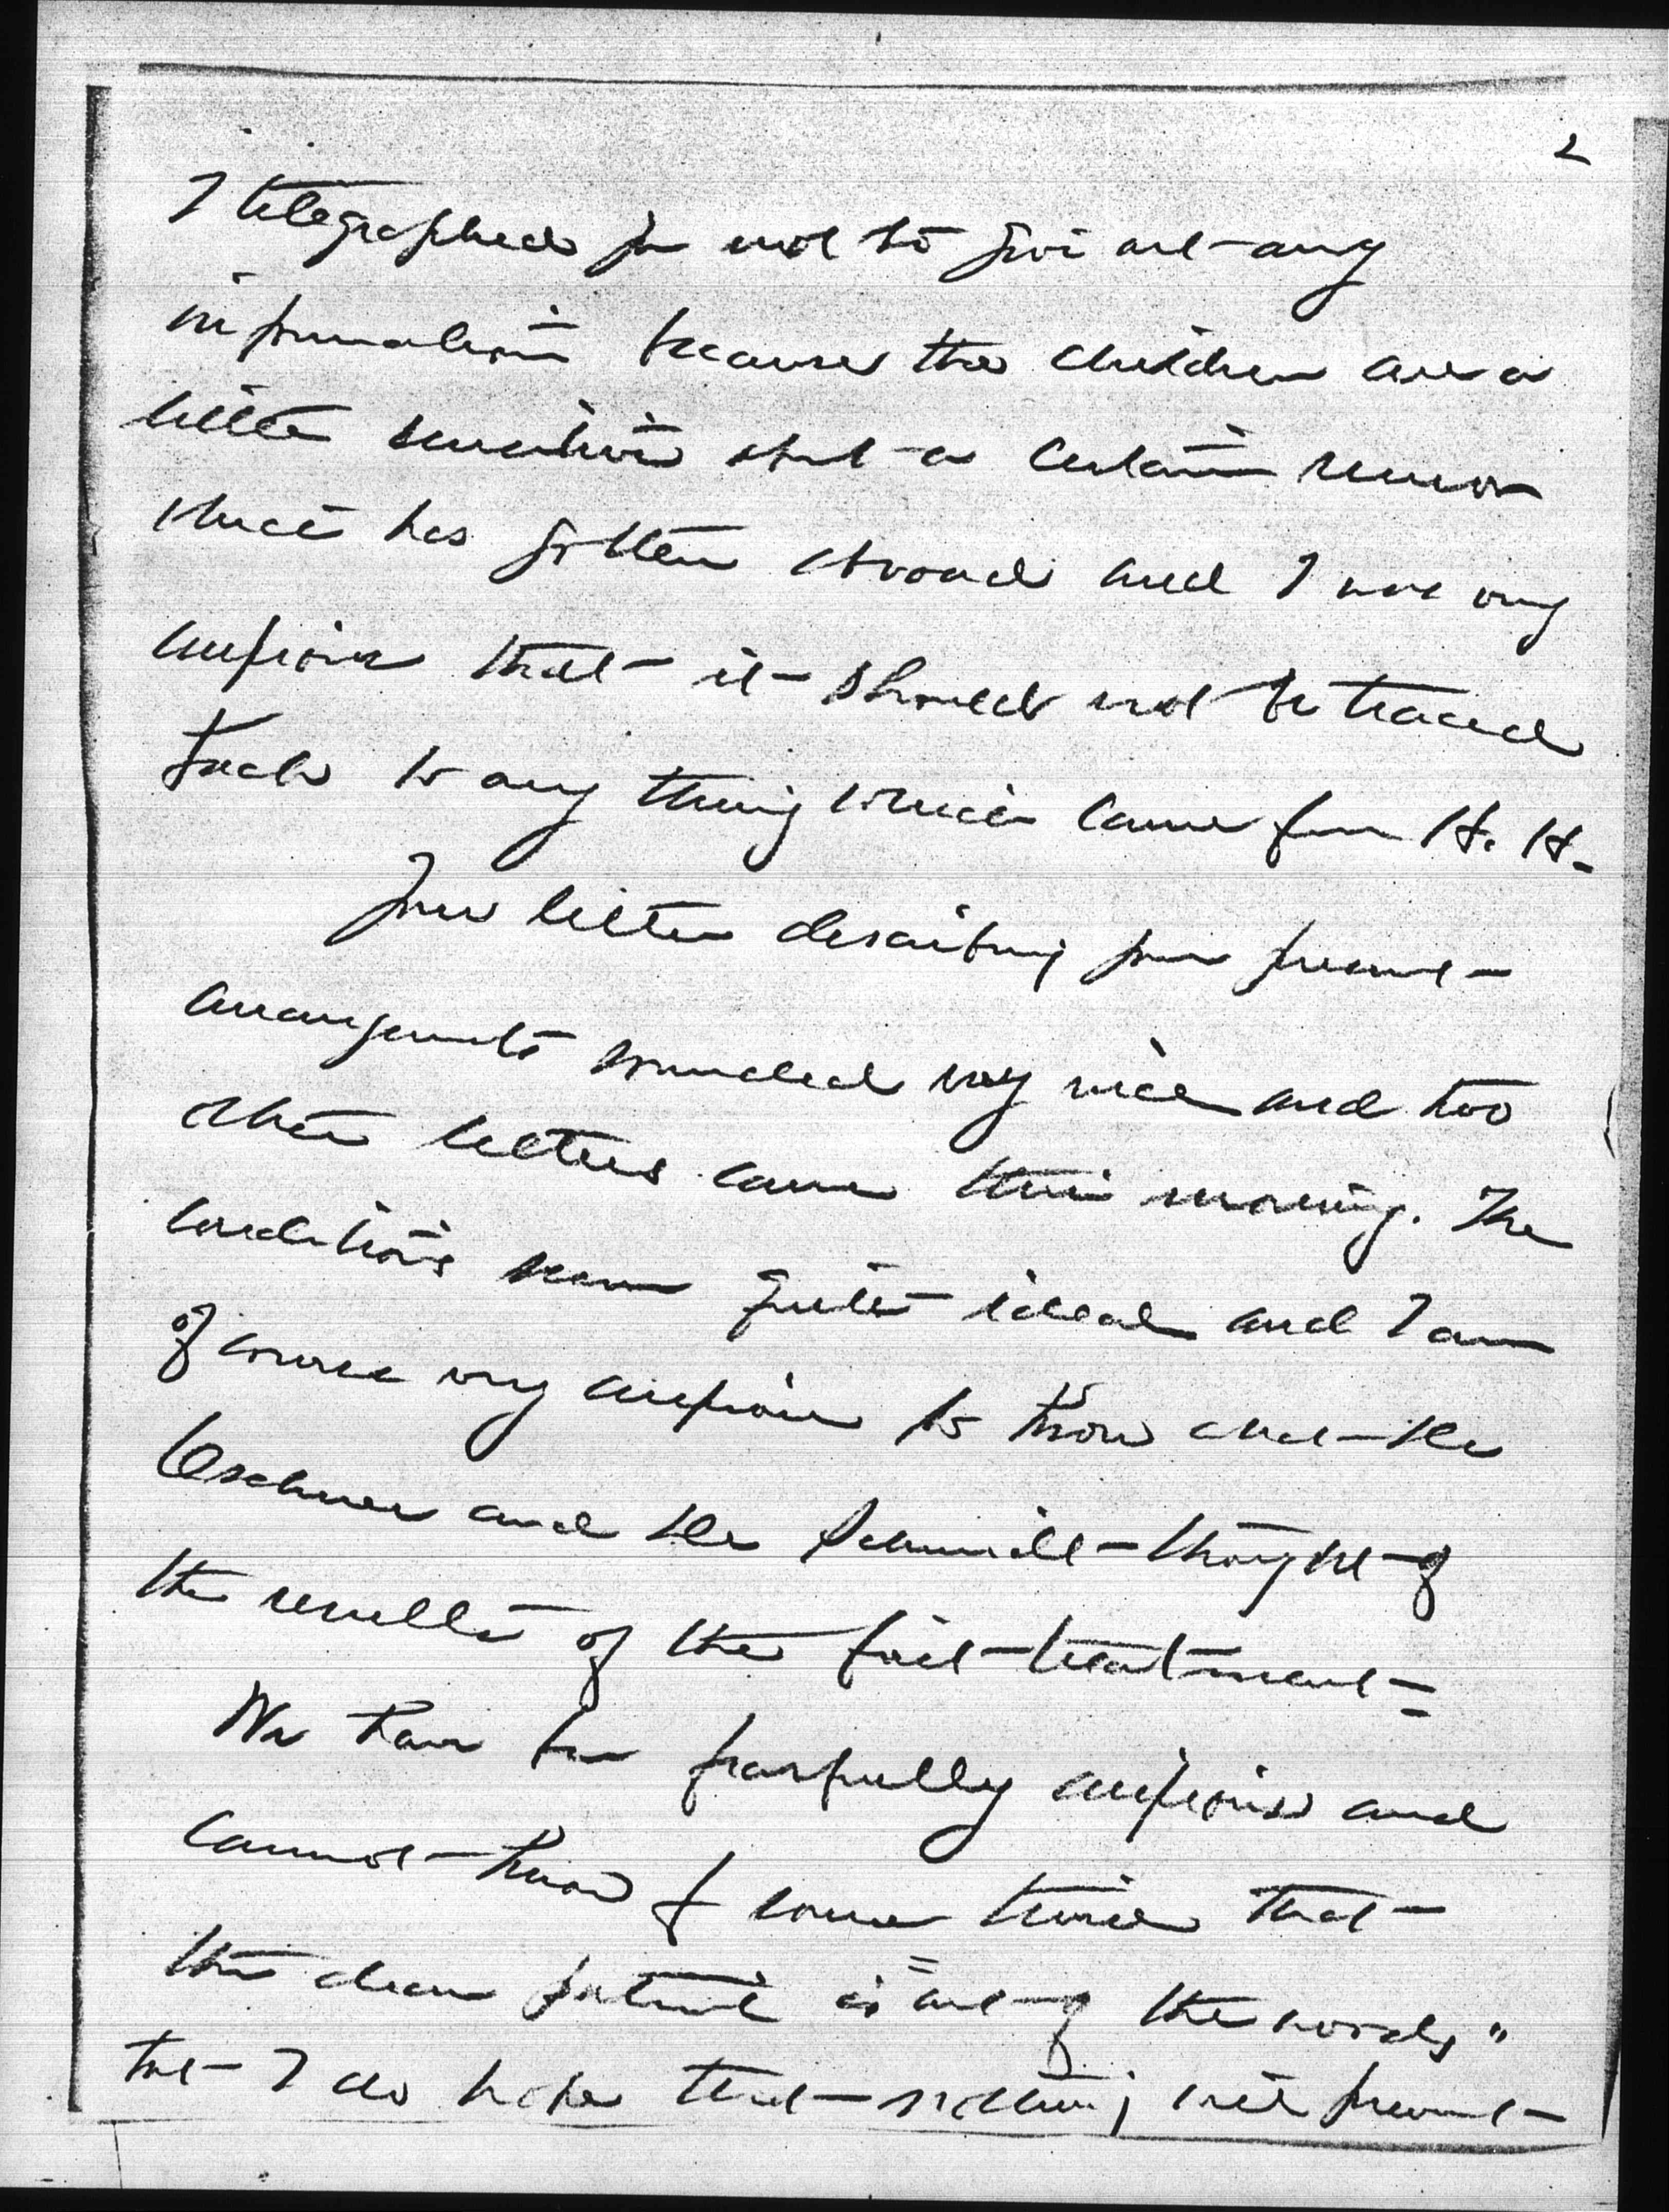 2
I telegraphed you not to give out any
information because the children are a
little sensitive about a certain rumor
which has gotten abroad and I was very
anxious that it should not be traced
back to any thing which came from H. H.
Your letter describing your present
arrangements sounded very nice and two
other letters came this morning. The
conditions seem quite ideal and I am
of course very anxious to know what Dr
Oschner and Dr Schmidt thought of
the results of the first treatment =
We have been fearfully anxious and
cannot know of course twice that
the dear patient is "out of the woods"
but I do hope that nothing will prevent